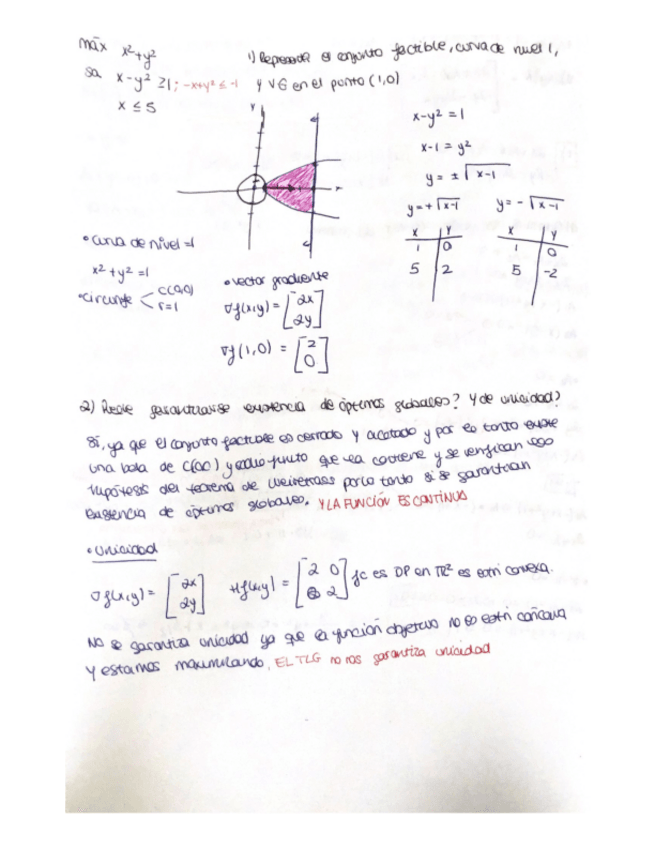 máx x²+y²
sa x-y² ≥1; -x+y² ≤ -1
x ≤ 5
1) Representa el conjunto factible, curva de nivel 1,
y VG en el punto (1,0)
x-y² = 1
x-1 = y²
y = ± √x-1
y=+√x-1 y=-√x-1
x y x y
1 0 1 0
5 2 5 -2
• curva de nivel =1
x²+y² =1
• circunfe < C(0,0)
r=1
• vector gradiente
∇f(x,y) = [2x
2y]
∇f(1,0) = [2
0]
2) garantizarse existencia de óptimos globales? Y de unicidad?
Sí, ya que el conjunto factible es cerrado y acotado y por lo tanto existe
una bola de C(0,0) y radio que la contiene y se verifican
hipótesis del teorema de Weierstrass por lo tanto si se garantizan
existencia de óptimos globales. Y LA FUNCIÓN ES CONTINUA
• Unicidad
∇f(x,y) = [2x
2y] Hf(x,y) = [2 0
0 2] fc es DP en ℝ² es estri convexa.
No se garantiza unicidad ya que la función objetivo no es estri cóncava
y estamos maximizando. EL TLG no nos garantiza unicidad